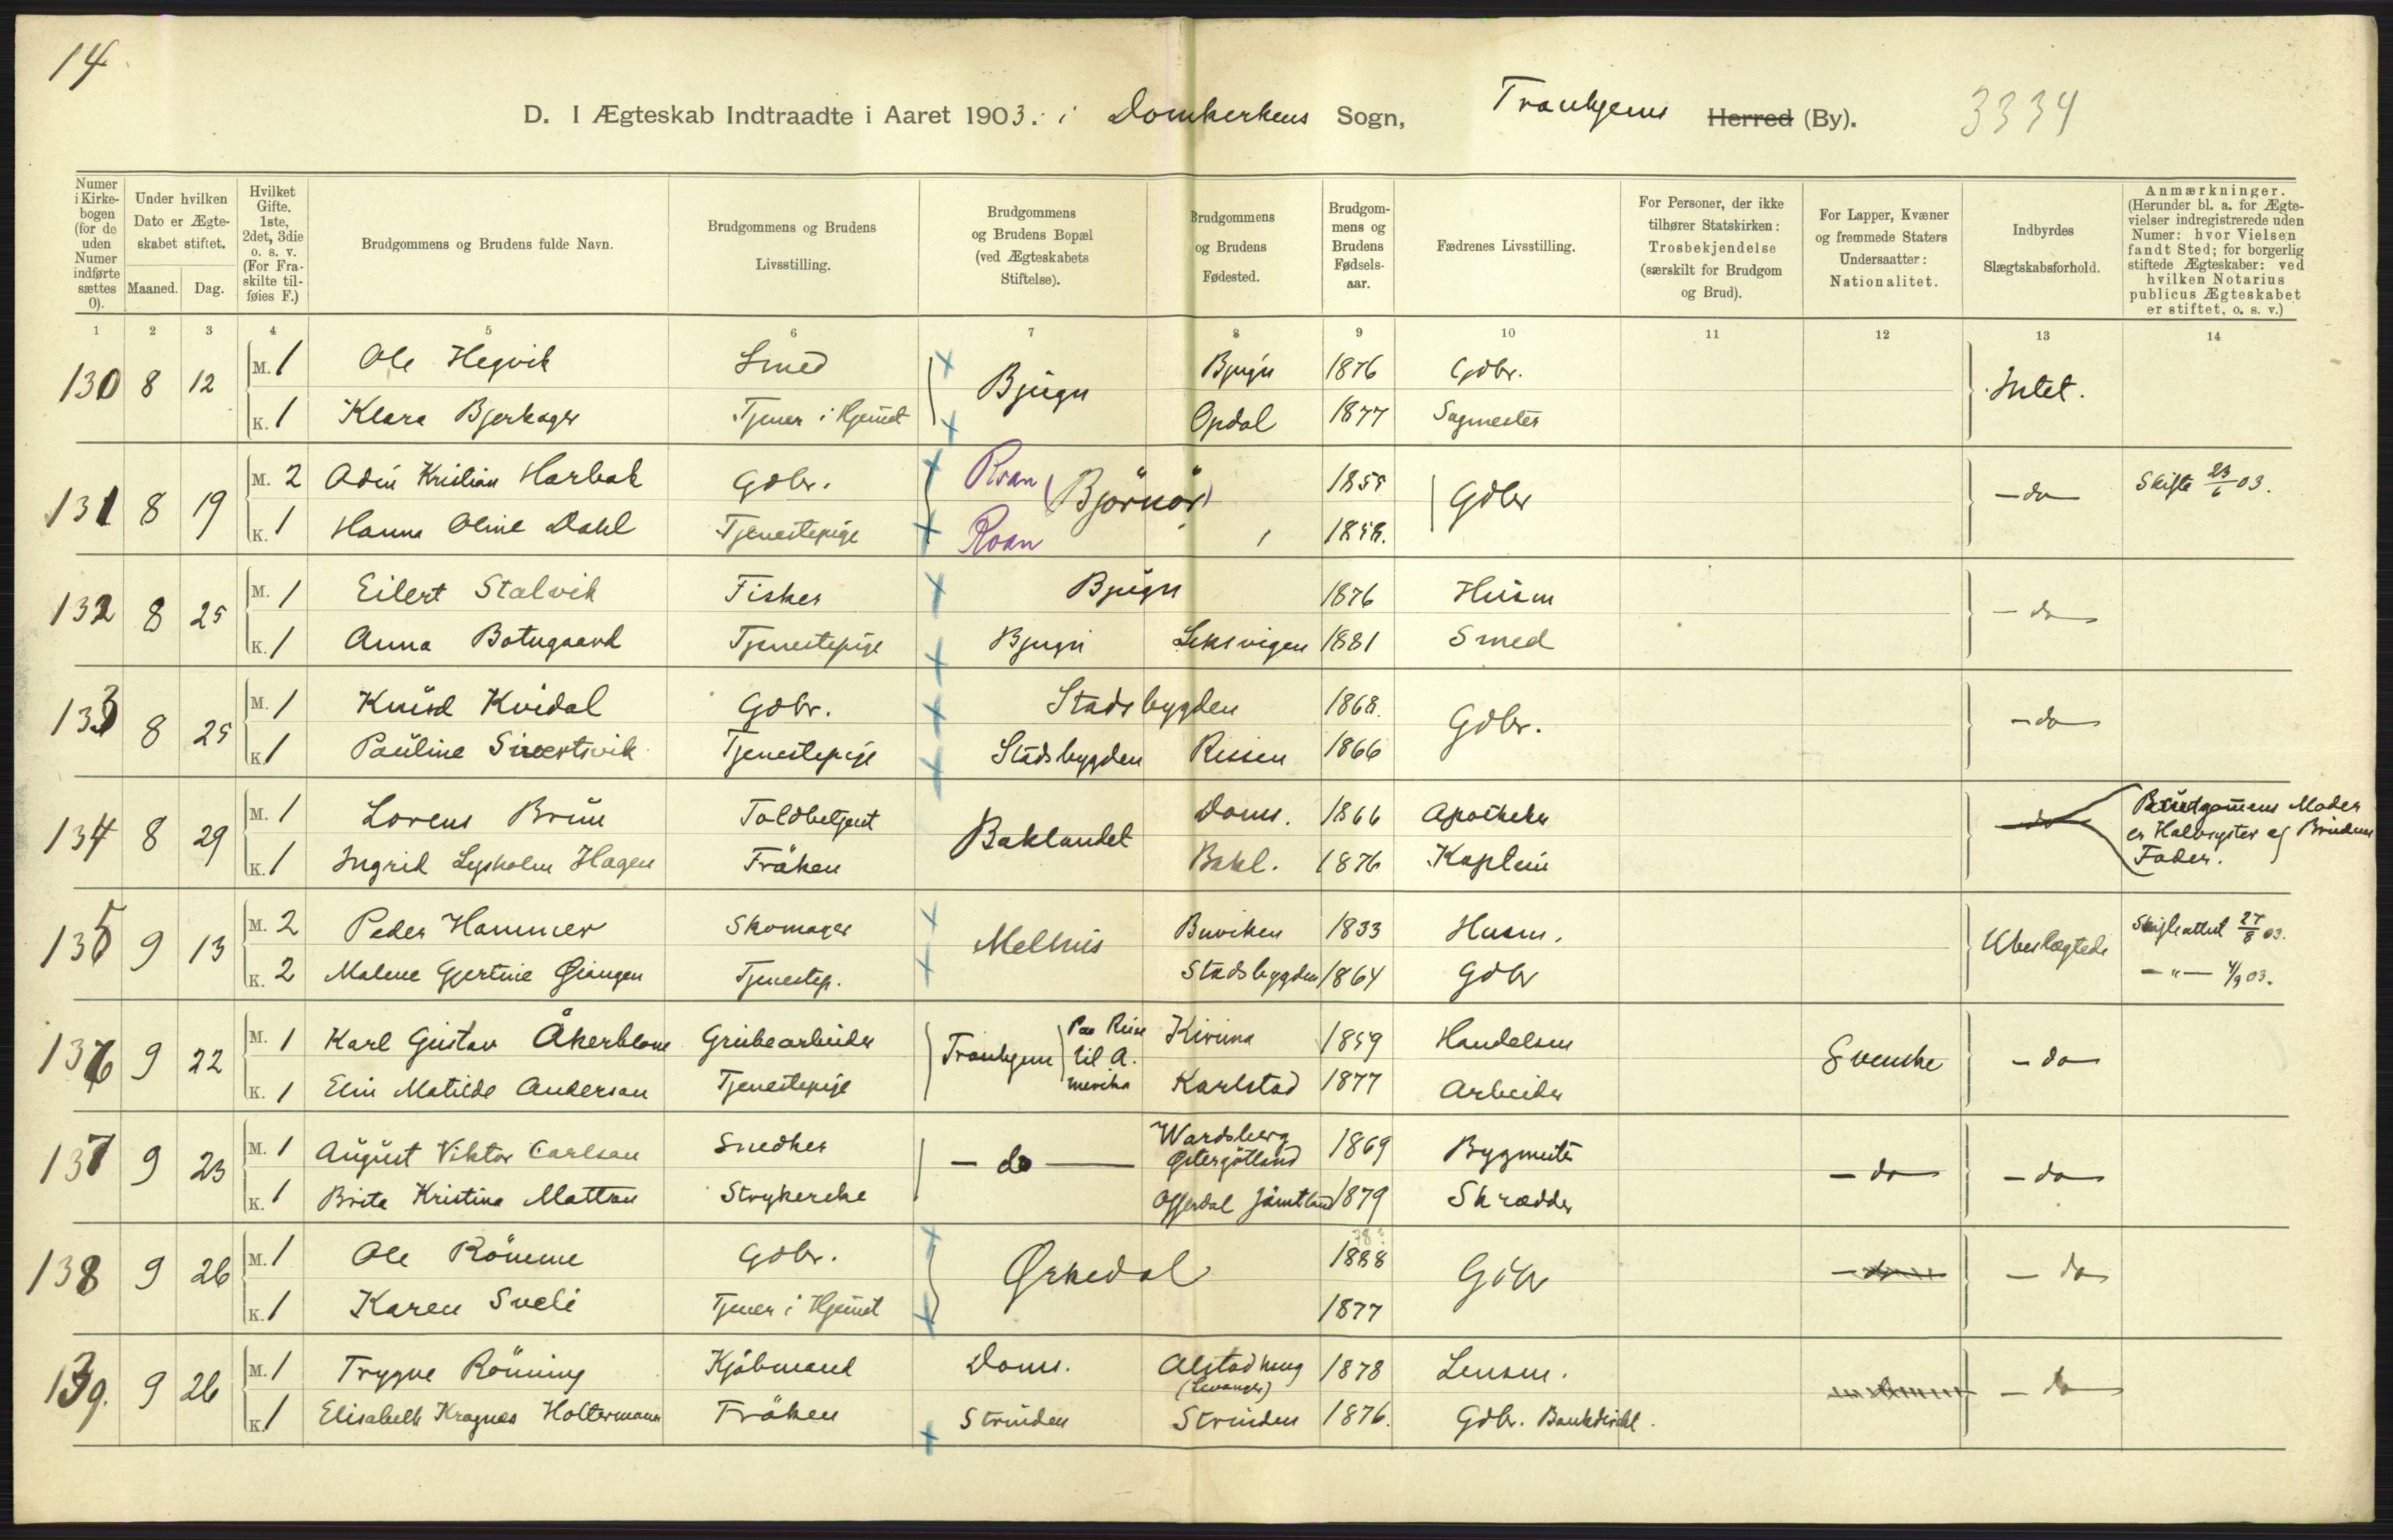 14
D. I Ægteskab Indtraadte i Aaret 1903. i Domkerkens Sogn, Tronhjems Herred (By). 3334
Numer i Kirkebogen (for de uden Numer indførte sættes 0).
Under hvilken Dato er Ægteskabet stiftet.
Maaned. Dag.
Hvilket Gifte. 1ste, 2det, 3die o. s. v. (For Fraskilte tilføies F.)
Brudgommens og Brudens fulde Navn.
Brudgommens og Brudens Livsstilling.
Brudgommens og Brudens Bopæl (ved Ægteskabets Stiftelse).
Brudgommens og Brudens Fødested.
Brudgommens og Brudens Fødselsaar.
Fædrenes Livsstilling.
For Personer, der ikke tilhører Statskirken: Trosbekjendelse (særskilt for Brudgom og Brud).
For Lapper, Kvæner og fremmede Staters Undersaatter: Nationalitet.
Indbyrdes Slægtskabsforhold.
Anmærkninger. (Herunder bl. a. for Ægtevielser indregistrerede uden Numer: hvor Vielsen fandt Sted; for borgerlig stiftede Ægteskaber: ved hvilken Notarius publicus Ægteskabet er stiftet, o. s. v.)
1 2 3 4 5 6 7 8 9 10 11 12 13 14
130 8 12 M. 1 Ole Hegvik Smed Bjugn Bjugn 1876 Gdbr. Intet.
K. 1 Klara Bjerkager Tjener i Hjemet Opdal 1877 Sagmester
131 8 19 M. 2 Adin Kristian Harbak Gdbr. Roan (Björnör) 1855 Gdbr - do - Skifte 23/6 03.
K. 1 Hanna Oline Dahl Tjenestepige Roan 1858.
132 8 25 M. 1 Eilert Stalvik Fisker Bjugn 1876 Husm - do
K. 1 Anna Botngaard Tjenestepige Bjugn Leksvigen 1881 Smed
133 8 25 M. 1 Knud Kvidal Gdbr. Stadsbygden 1868. Gdbr. - do
K. 1 Pauline Sivertsvik Tjenestepige Stadsbygden Rissen 1866
134 8 29 M. 1 Lorens Brun Toldbetjent Baklandet Doms. 1866 Apotheker do Brudgomens Moder
er Halvsyster af Brudens
K. 1 Ingrid Lysholm Hagen Fröken Bakl. 1876 Kaptein Fader.
135 9 13 M. 2 Peder Hammer Skomager Melhus Buviken 1833 Husm. Ubeslægtede Skifteattest 27/8 03.
K. 2 Malene Gjertine Öiangen Tjenestep. Stadsbygden 1864 Gdbr - " - 4/9 03.
136 9 22 M. 1 Karl Gustav Åkerblom Grubearbeider Tronhjem Paa Reise til A. Kiruna 1859 Handelsm Svenske - do
K. 1 Elin Matilde Anderson Tjenestepige merika Karlstad 1877 Arbeider
137 9 23 M. 1 August Viktor Carlson Snedker - do - Wardsberg Östergötland 1869 Bygmester - do - do
K. 1 Brita Kristina Mattson Strykerske Offerdal Jämtland 1879 Skrædder
78?
138 9 26 M. 1 Ole Römme Gdbr. Ørkedal 1888 Gdbr - do - do
K. 1 Karen Sveli Tjener i Hjemet 1877
139. 9 26 M. 1 Trygve Rönning Kjöbmand Doms. Alstadhaug (Levanger) 1878 Lensm. - do
K. 1 Elisabeth Kragnæs Holtermann Fröken Strinden Strinden 1876. Gdbr. Bankdirekt.